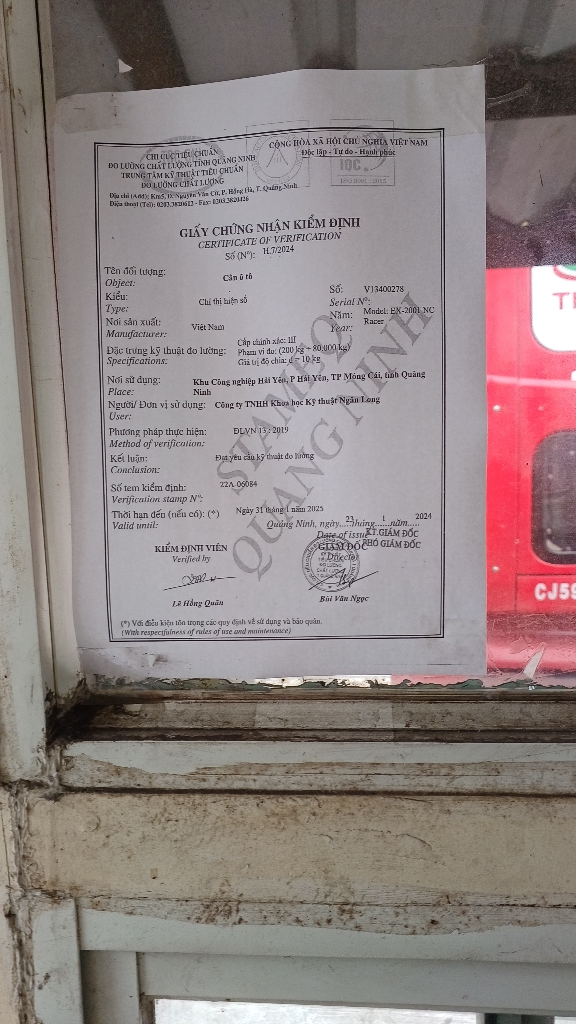 CHI CỤC TIÊU CHUẨN
ĐO LƯỜNG CHẤT LƯỢNG TỈNH QUẢNG NINH
TRUNG TÂM KỸ THUẬT TIÊU CHUẨN
ĐO LƯỜNG CHẤT LƯỢNG
Địa chỉ (Add): Km5, Đ. Nguyễn Văn Cừ, P. Hồng Hà, T. Quảng Ninh
Điện thoại (Tel): 0203.3820613 - Fax: 0203.3820426
CỘNG HÒA XÃ HỘI CHỦ NGHĨA VIỆT NAM
Độc lập - Tự do - Hạnh phúc
IQC
ISO 9001 : 2015
GIẤY CHỨNG NHẬN KIỂM ĐỊNH
CERTIFICATE OF VERIFICATION
Số (N°): H.7/2024
Tên đối tượng: Cân ô tô
Object:
Kiểu: Chỉ thị hiện số
Type:
Số: V13400278
Serial N°:
Nơi sản xuất: Việt Nam
Manufacturer:
Năm: Model: EX-2001 NC
Year: Racer
Đặc trưng kỹ thuật đo lường:
Specifications:
Cấp chính xác: III
Phạm vi đo: (200 kg ÷ 80.000 kg)
Giá trị độ chia: d = 10 kg
Nơi sử dụng: Khu Công nghiệp Hải Yên, P Hải Yên, TP Móng Cái, tỉnh Quảng
Place: Ninh
Người/ Đơn vị sử dụng: Công ty TNHH Khoa học Kỹ thuật Ngân Long
User:
Phương pháp thực hiện: ĐLVN 13 : 2019
Method of verification:
Kết luận: Đạt yêu cầu kỹ thuật đo lường
Conclusion:
Số tem kiểm định: 22A 06084
Verification stamp N°:
Thời hạn đến (nếu có): (*) Ngày 31 tháng 1 năm 2025
Valid until:
Quảng Ninh, ngày 23 tháng 1 năm 2024
Date of issue
KIỂM ĐỊNH VIÊN
Verified by
KT.GIÁM ĐỐC
GIÁM ĐỐC PHÓ GIÁM ĐỐC
Director
Lê Hồng Quân
Bùi Văn Ngọc
(*) Với điều kiện tôn trọng các quy định về sử dụng và bảo quản.
(With respectfulness of rules of use and maintenance)
STAMEQ
QUANG NINH
CJ59